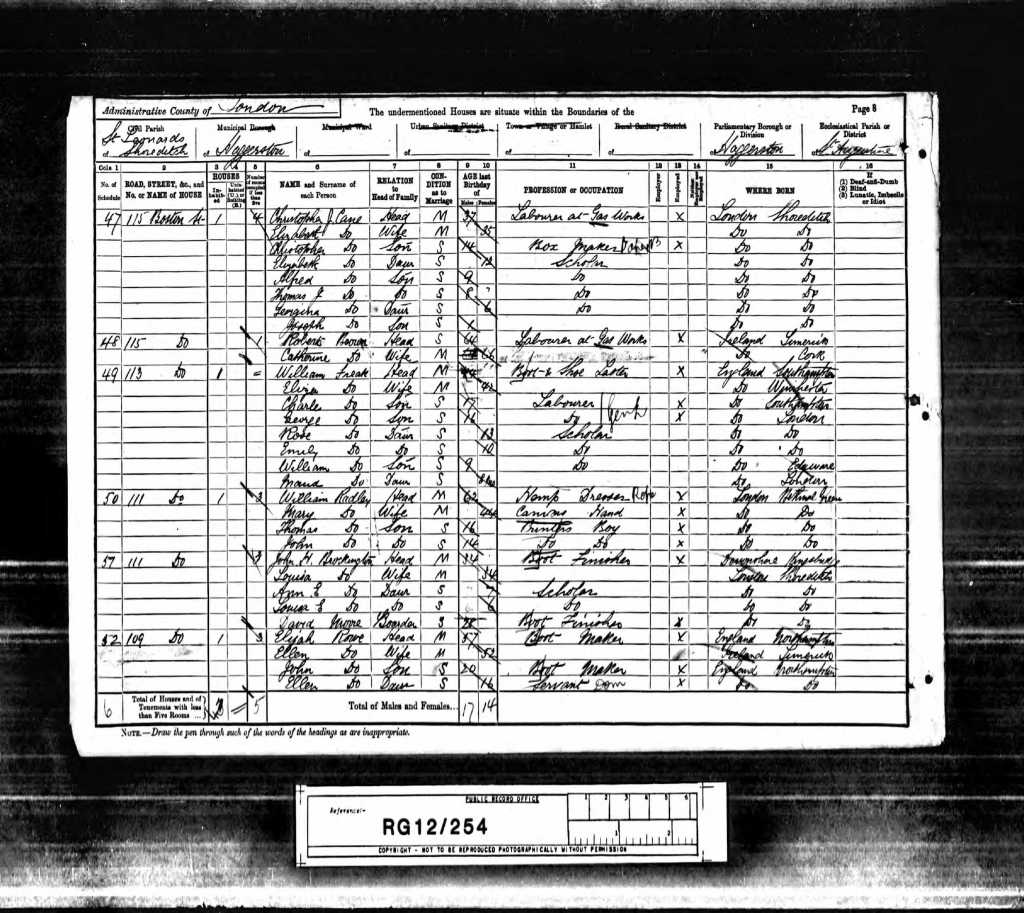 Administrative County of London The undermentioned Houses are situate within the Boundaries of the Page 8
Civil Parish Municipal Borough Municipal Ward Urban Sanitary District Town or Village or Hamlet Rural Sanitary District Parliamentary Borough or Division Ecclesiastical Parish or District
of St Leonards Shoreditch of Haggerston of of of of of Haggerston of St Augustine
Cols 1 2 3 4 5 6 7 8 9 10 11 12 13 14 15 16
No. of Schedule ROAD, STREET, &c., and No. or NAME of HOUSE HOUSES Inhabited Uninhabited (U.) or Building (B.) Number of rooms occupied if less than five NAME and Surname of each Person RELATION to Head of Family CONDITION as to Marriage AGE last Birthday of Males Females PROFESSION or OCCUPATION Employer Employed WHERE BORN If (1) Deaf-and-Dumb (2) Blind (3) Lunatic, Imbecile or Idiot
47 115 Boston St 1 4 Christopher J. Cane Head M 37 Labourer at Gas Works x London Shoreditch
Elizabeth Do Wife M 35 Do Do
Christopher Do Son S 14 Box Maker x Do Do
Elizabeth Do Daur S 12 Scholar Do Do
Alfred Do Son S 9 Do Do Do
Thomas J Do Do S 8 Do Do Do
Georgina Do Daur S 6 Do Do Do
Joseph Do Son S 1 Do Do
48 115 Do 1 Robert Brown Head S 64 Labourer at Gas Works x Ireland Limerick
Catherine Do Wife M 66 Do Cork
49 113 Do 1 = William Freak Head M 44 Boot & Shoe Laster x England Southampton
Eliza Do Wife M 42 Do Winchester
Charle Do Son S 17 Labourer x Do Southampton
George Do Son S 16 Do x Do London
Rose Do Daur S 13 Scholar Do Do
Emily Do Do S 10 Do Do Do
William Do Son S 9 Do Do Edgware
Maud Do Daur S Do London
50 111 Do 1 3 William Radley Head M 62 Hemp Dresser x London Bethnal Green
Mary Do Wife M 44 Canvas Hand x Do Do
Thomas Do Son S 16 Printers Boy x Do Do
John Do Do S 14 Do Do x Do Do
51 111 Do 3 John H. Brockington Head M 34 Boot Finisher x Devonshire
Louisa Do Wife M 34 London Shoreditch
Ann E Do Daur S 7 Scholar Do Do
Louisa E Do Do S 6 Do Do Do
David Moore Boarder S 28 Boot Finisher x Do Do
52 109 Do 1 3 Elijah Rowe Head M 57 Boot Maker x England Northampton
Ellen Do Wife M 52 Ireland Limerick
John Do Son S 20 Boot Maker x England Northampton
Ellen Do Daur S 16 Servant Dom x Do Do
6 Total of Houses and of Tenements with less than Five Rooms ... = 5 Total of Males and Females... 17 14
NOTE.—Draw the pen through such of the words of the headings as are inappropriate.
PUBLIC RECORD OFFICE
Reference:-
1 2 3 4 5 6
RG12/254
1 2
COPYRIGHT - NOT TO BE REPRODUCED PHOTOGRAPHICALLY WITHOUT PERMISSION